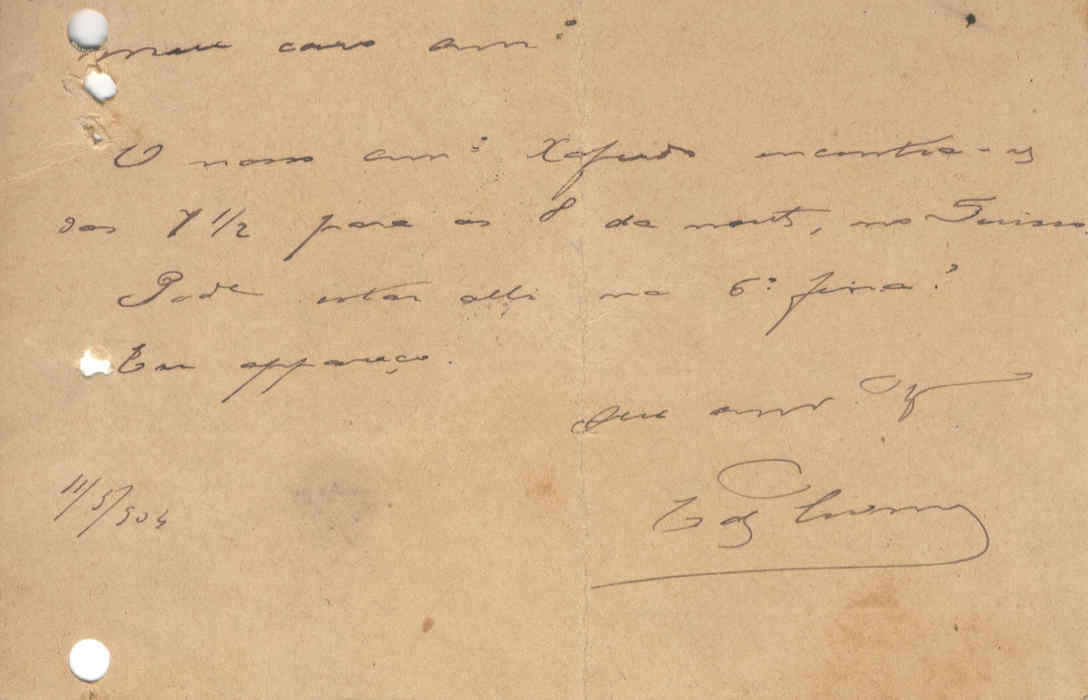 Meu caro am.º
O nosso am.º encontra-se
das 7 1/2 para as 8 da noute, no Suisso.
Pode estar alli na 6.ª feira?
Eu appareço.
Seu am.º
11/5/904